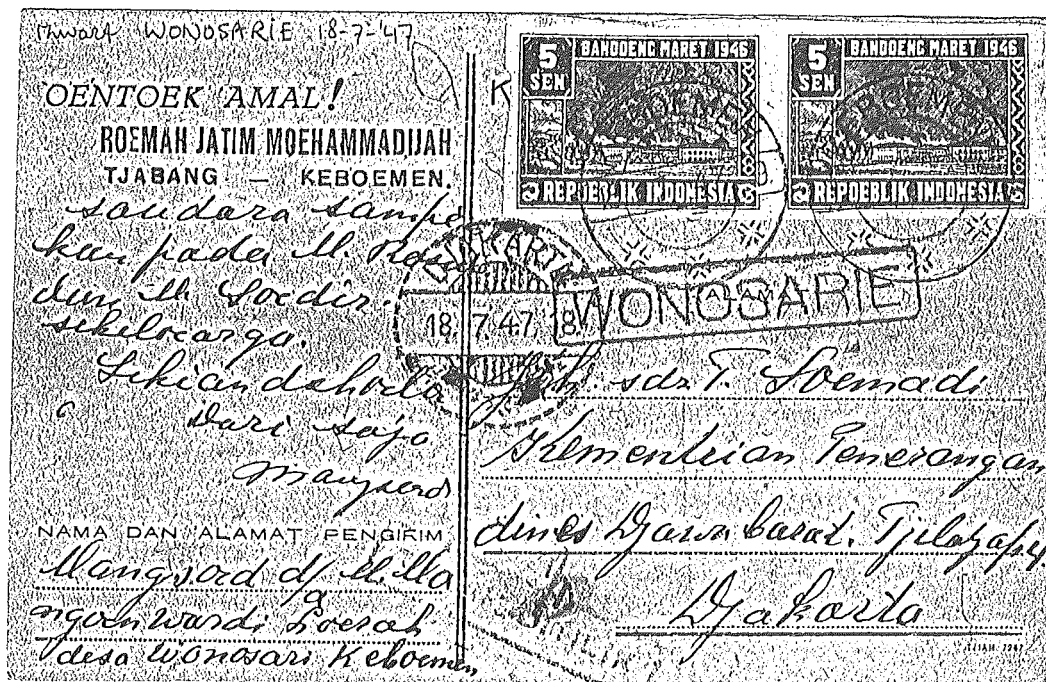 WONOSARIE 18-7-'47
OENTOEK 'AMAL!
ROEMAH JATIM MOEHAMMADIJAH
TJABANG — KEBOEMEN.
saudara sampe
kan pada M.
dan M. Soedir.
sekeloearga.
Sekian dahoeloe
Dari saja
NAMA DAN ALAMAT PENGIRIM
d/a M. Ma
ngoenwardi Loerah
desa Wonosari Keboemen
K
5 SEN
BANDOENG MARET 1946
REPOEBLIK INDONESIA
5 SEN
BANDOENG MARET 1946
REPOEBLIK INDONESIA
18.7.47. 8
WONOSARIE
ALAMAT
sdr. T. Soemadi
Kementrian Penerangan
dines Djawa barat.
Djakarta